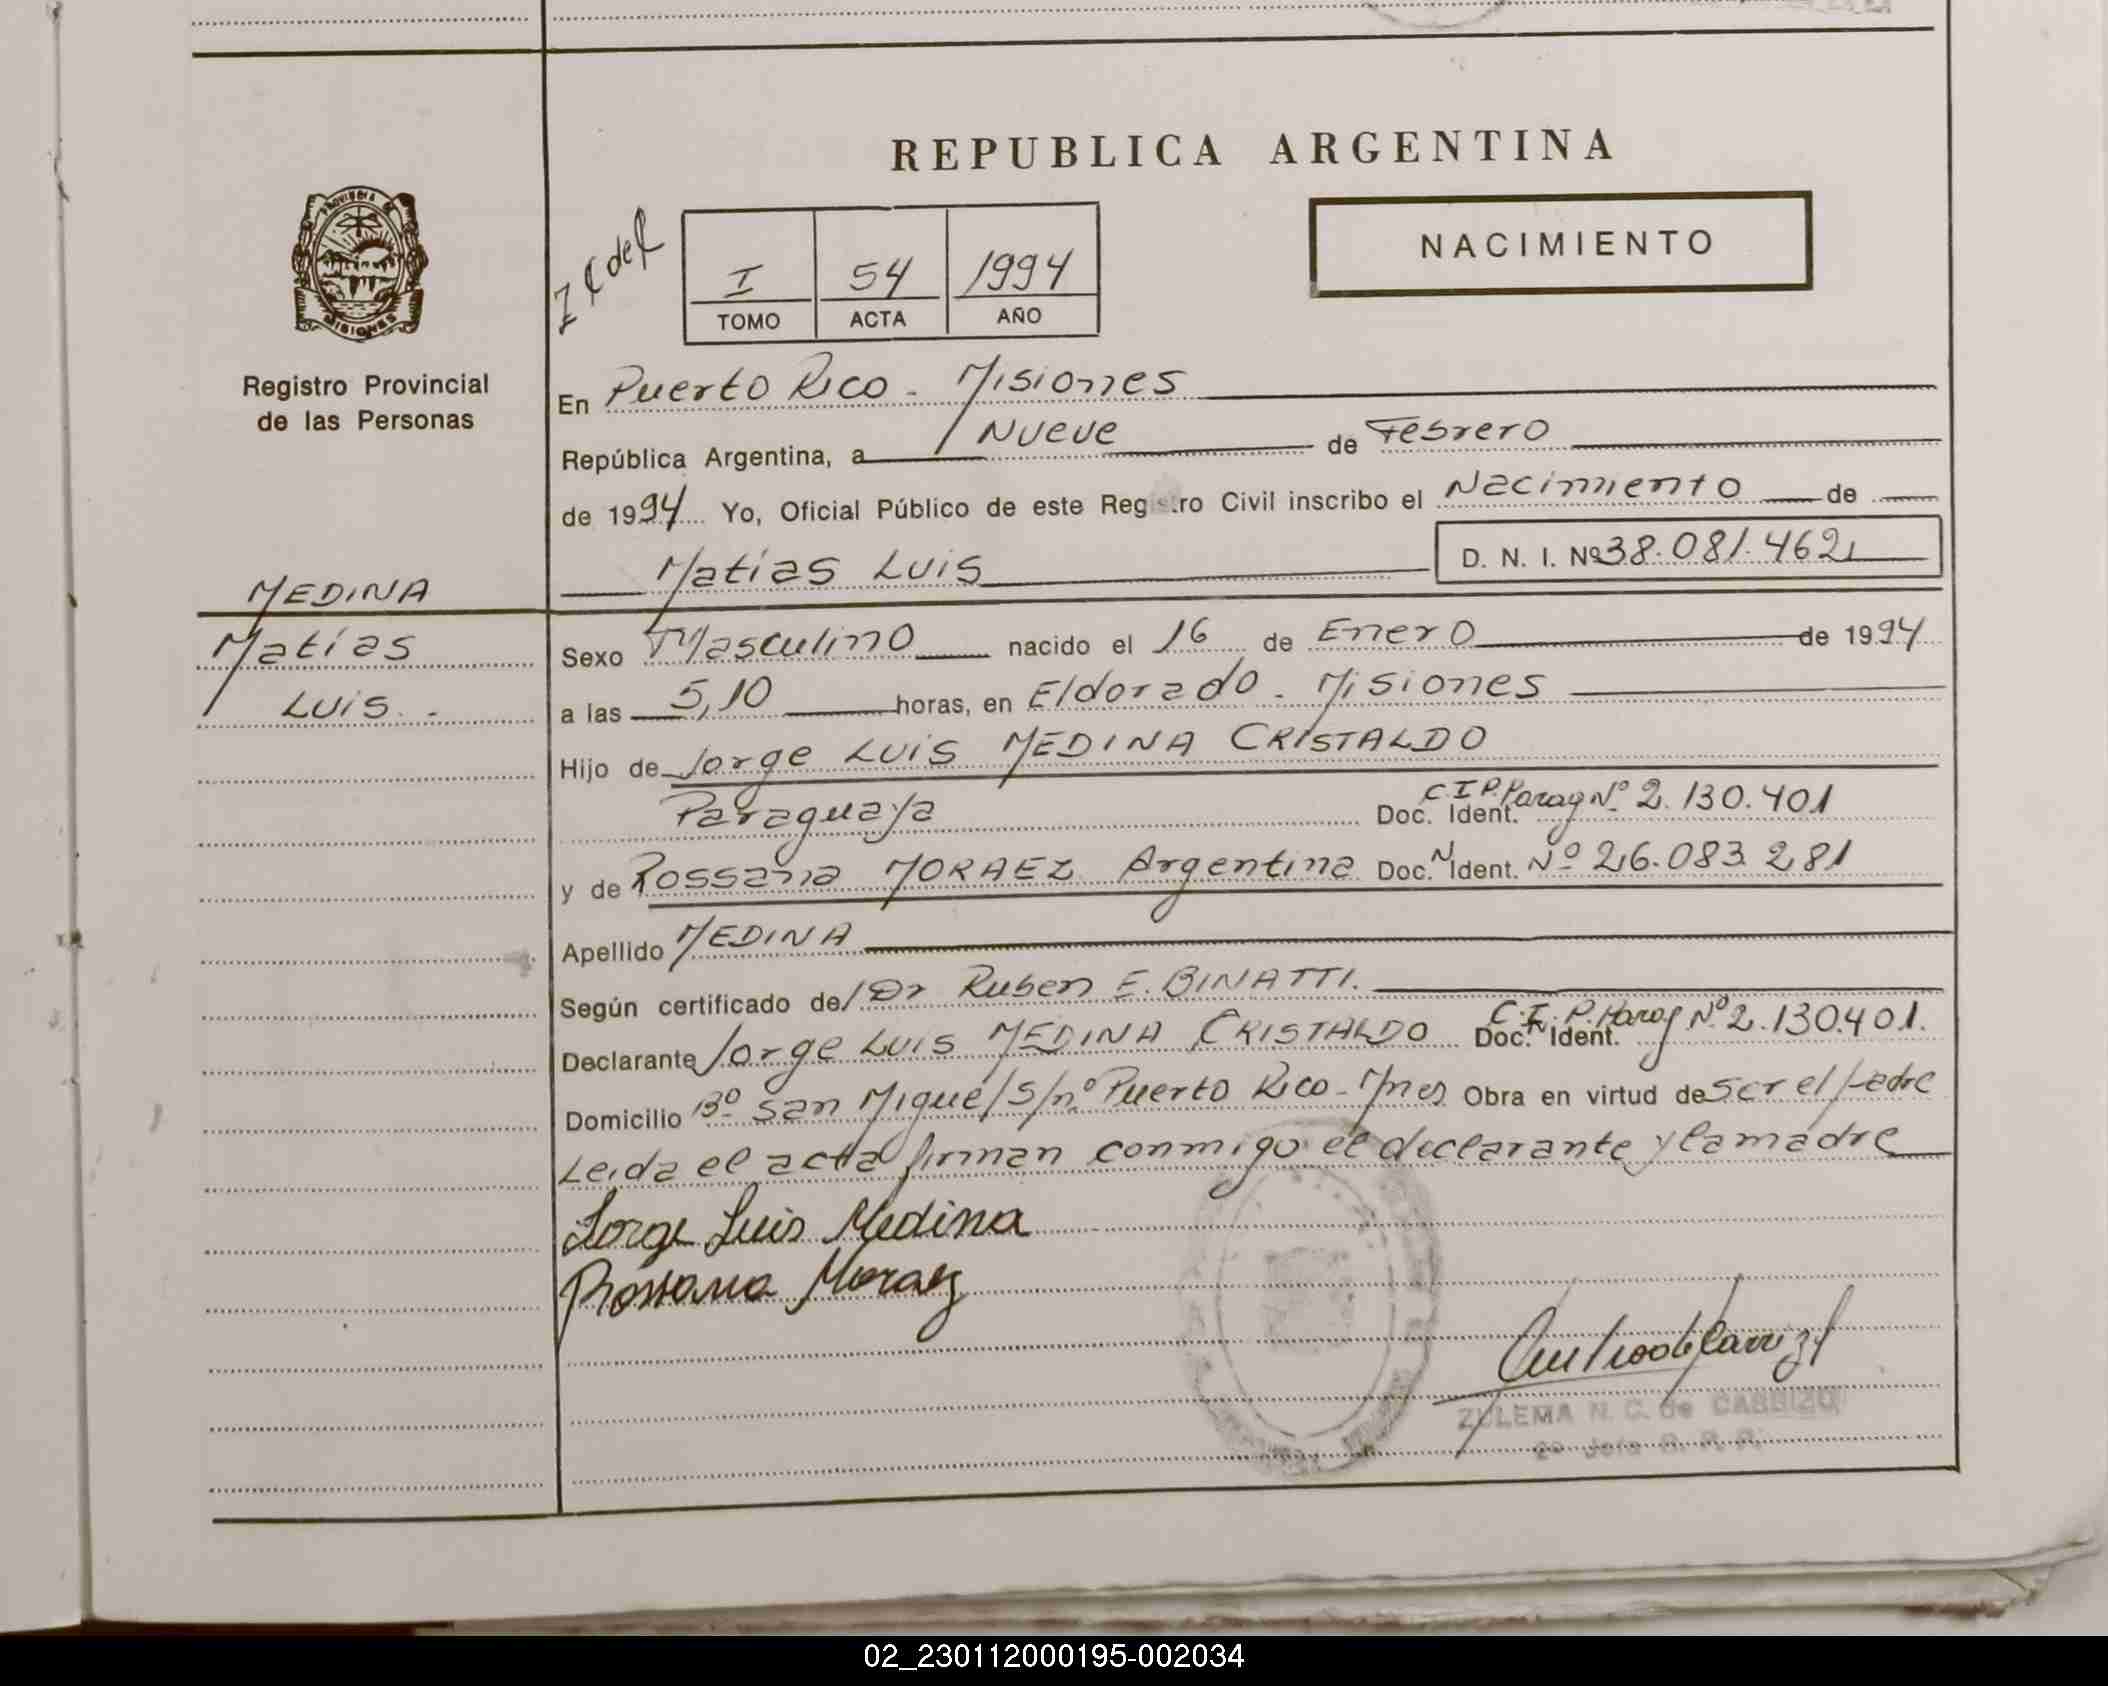 REPUBLICA ARGENTINA
PROVINCIA DE
MISIONES
Registro Provincial
de las Personas
I 54 1994
TOMO ACTA AÑO
NACIMIENTO
En Puerto Rico - Misiones
República Argentina, a Nueve de Febrero
de 1994 Yo, Oficial Público de este Registro Civil inscribo el Nacimiento de
Matías Luis D. N. I. Nº 38.081.462
MEDINA
Matías
Luis.-
Sexo Masculino nacido el 16 de Enero de 1994
a las 5,10 horas, en Eldorado - Misiones
Hijo de Jorge Luis MEDINA CRISTALDO
Paraguaya Doc. Ident. C.I.P. Parag Nº 2.130.401
y de Rossana MORAEZ Argentina Doc. N. Ident. Nº 26.083.281
Apellido MEDINA
Según certificado de/ Dr Ruben E. BINATTI.
Declarante Jorge Luis MEDINA CRISTALDO Doc. N. Ident. C.I.P. Parag Nº 2.130.401.
Domicilio Bº San Miguel S/nº Puerto Rico - Mnes Obra en virtud de Ser el padre
Leida el acta firman conmigo el declarante y la madre
Jorge Luis Medina
Rossana Moraez
ZULEMA N. C. de CARRIZO
2º Jefe R. P. P.
02_230112000195-002034